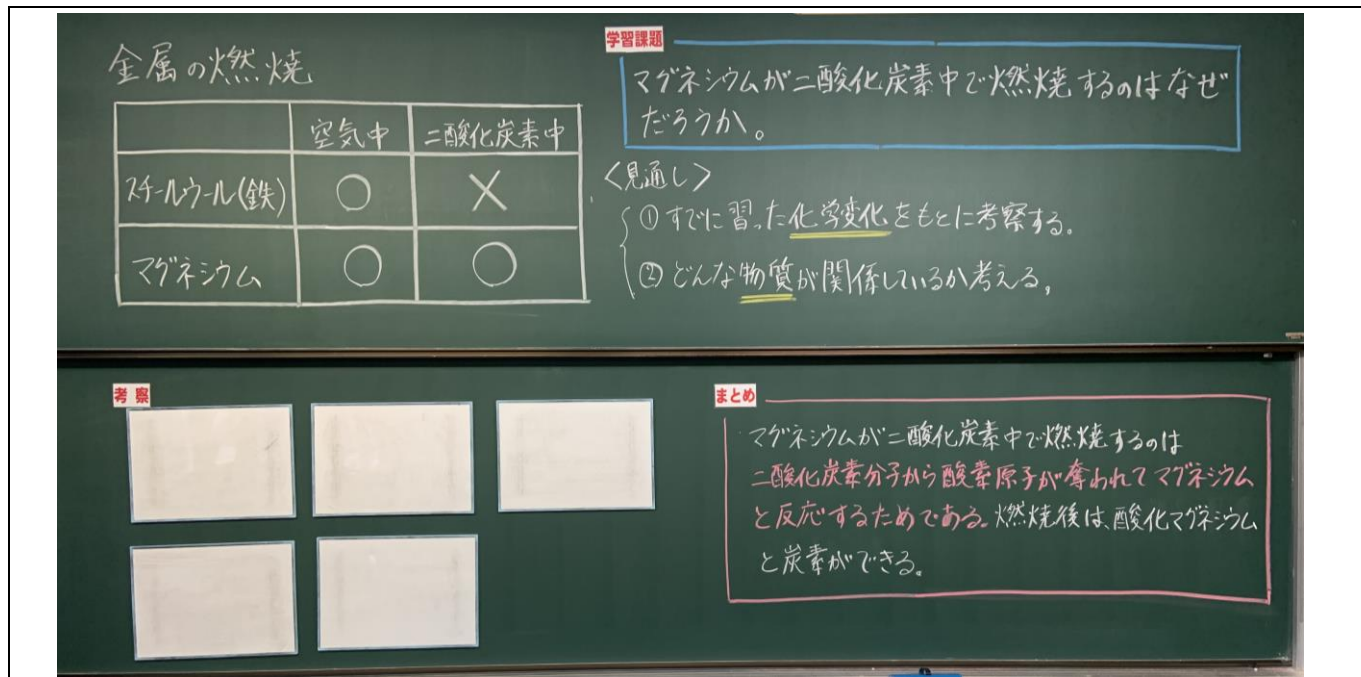 金属の燃焼
空気中 二酸化炭素中
スチールウール(鉄) ○ ×
マグネシウム ○ ○
学習課題
マグネシウムが二酸化炭素中で燃焼するのはなぜ
だろうか。
<見通し>
①すでに習った化学変化をもとに考察する。
②どんな物質が関係しているか考える。
考察
まとめ
マグネシウムが二酸化炭素中で燃焼するのは
二酸化炭素分子から酸素原子が奪われてマグネシウム
と反応するためである。燃焼後は、酸化マグネシウム
と炭素ができる。